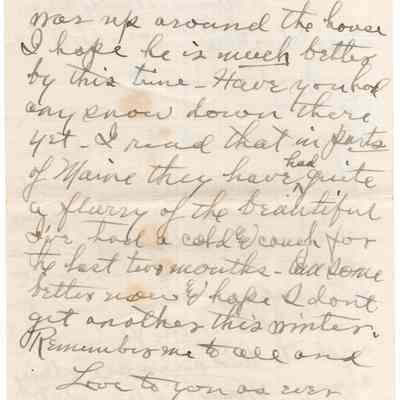 was up around the house
I hope he is much better
by this time - Have you had
any snow down there
yet - I read that in parts
of Maine they have had quite
a flurry of the beautiful
I've had a cold & cough for
the last two months - am some
better now & hope I dont
get another this winter.
Remember me to all and
Love to you as ever